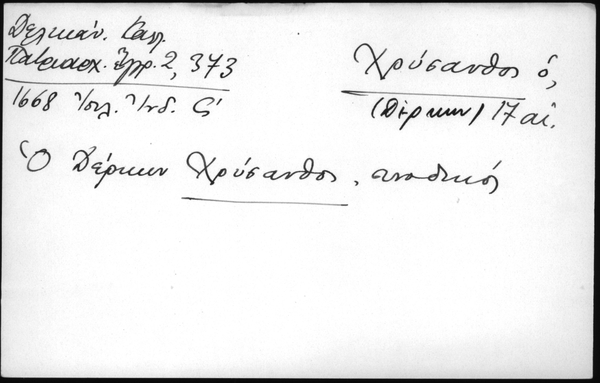 Δελικάν. Καλλ.
Πατριαρχ. Ἔγγρ. 2, 373
1668 Ἰουλ. Ἰνδ. ς΄
Χρύσανθος ὁ,
(Δέρκων) 17 αἰ.
Ὁ Δέρκων Χρύσανθος, συνοδικός